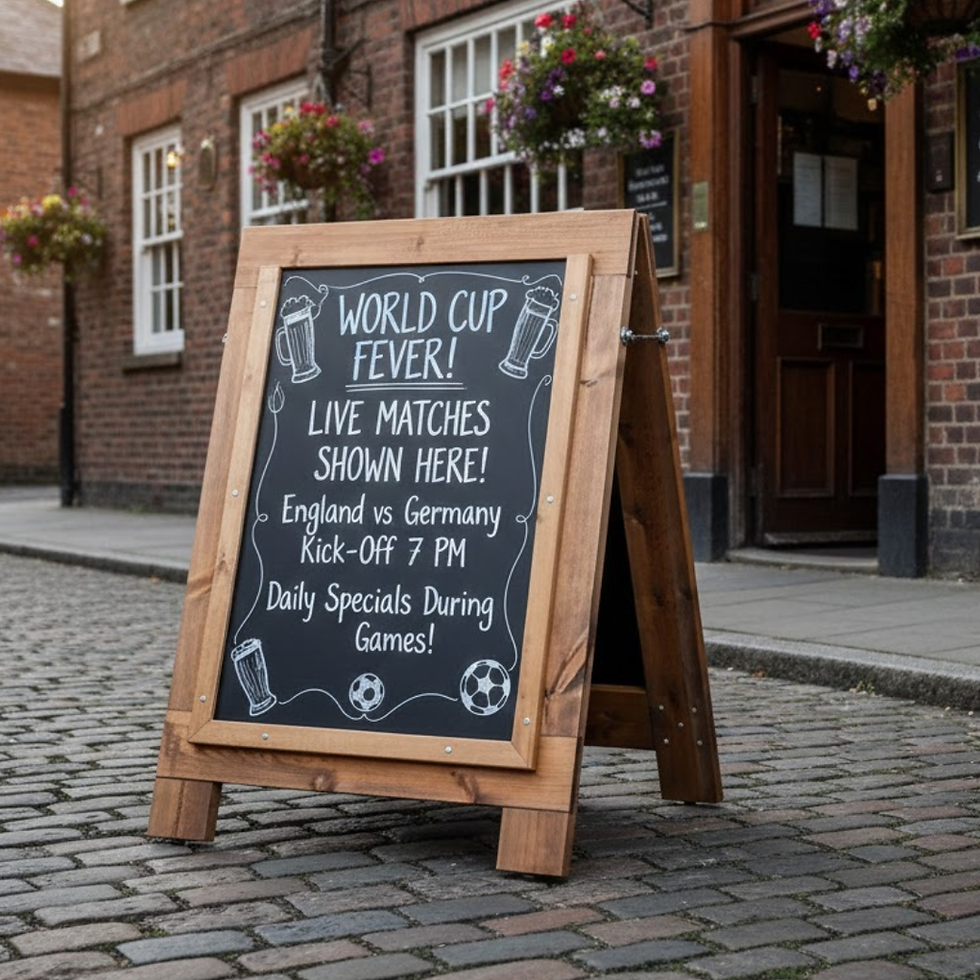 WORLD CUP
FEVER!
LIVE MATCHES
SHOWN HERE!
England vs Germany
Kick-Off 7 PM
Daily Specials During
Games!